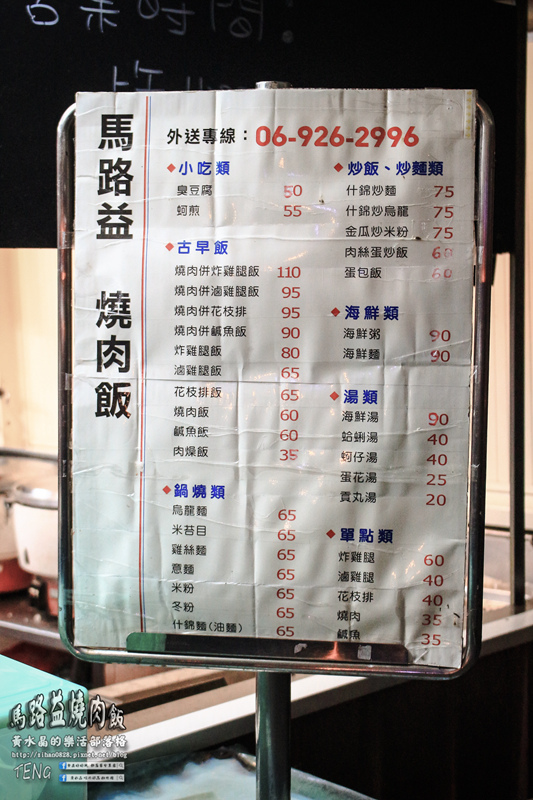 馬路益 燒肉飯
外送專線：06-926-2996
◆小吃類
臭豆腐 50
蚵煎 55
◆古早飯
燒肉併炸雞腿飯 110
燒肉併滷雞腿飯 95
燒肉併花枝排 95
燒肉併鹹魚飯 90
炸雞腿飯 80
滷雞腿飯 65
花枝排飯 65
燒肉飯 60
鹹魚飯 60
肉燥飯 35
◆鍋燒類
烏龍麵 65
米苔目 65
雞絲麵 65
意麵 65
米粉 65
冬粉 65
什錦麵(油麵) 65
◆炒飯、炒麵類
什錦炒麵 75
什錦炒烏龍 75
金瓜炒米粉 75
肉絲蛋炒飯 60
蛋包飯 60
◆海鮮類
海鮮粥 90
海鮮麵 90
◆湯類
海鮮湯 90
蛤蜊湯 40
蚵仔湯 40
蛋花湯 25
貢丸湯 20
◆單點類
炸雞腿 60
滷雞腿 40
花枝排 40
燒肉 35
鹹魚 35
馬路益燒肉飯
黃水晶的樂活部落格
http://sihan0828.pixnet.net/blog
TENG